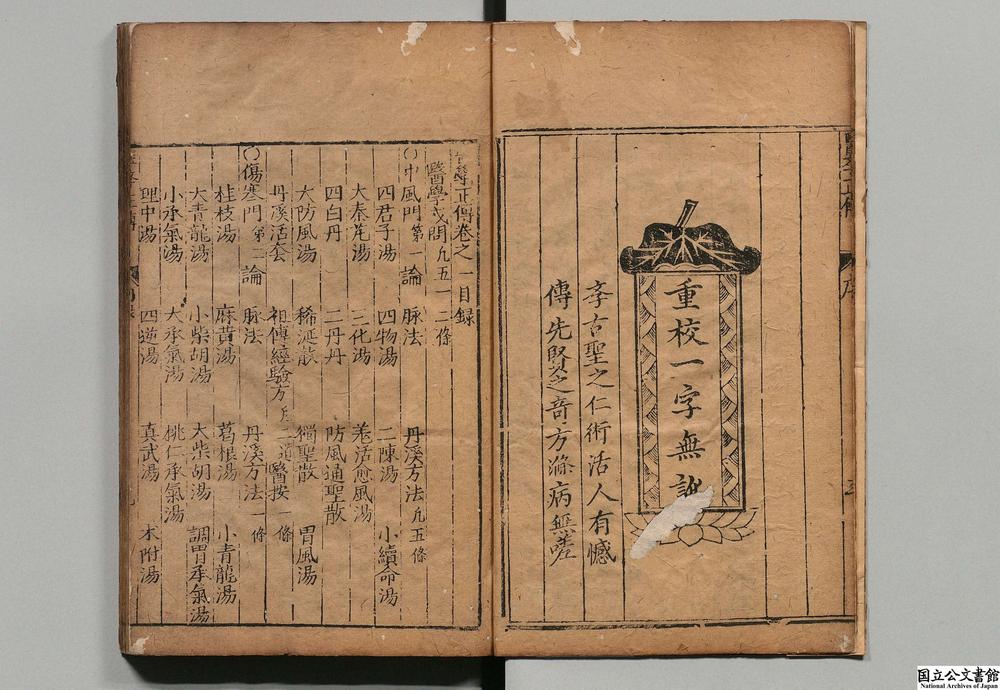 重校一字無訛
李古聖之仁術活人有憾
傳先賢之奇方滌病無嗟
醫學正傳卷之一目錄
醫學或問凡五一二條
○中風門第一論 脉法 丹溪方法凡五條
四君子湯 四物湯 二陳湯 小續命湯
大秦艽湯 三化湯 羗活愈風湯
四白丹 二丹丹 防風通聖散
大防風湯 稀涎散 獨聖散 胃風湯
丹溪活套 祖傳經驗方 醫按一條
○傷寒門第二論 脉法 丹溪方法一條
桂枝湯 麻黃湯 葛根湯 小青龍湯
大青龍湯 小柴胡湯 大柴胡湯 調胃承氣湯
小承氣湯 大承氣湯 桃仁承氣湯
理中湯 四逆湯 真武湯 术附湯
国立公文書館
National Archives of Japan